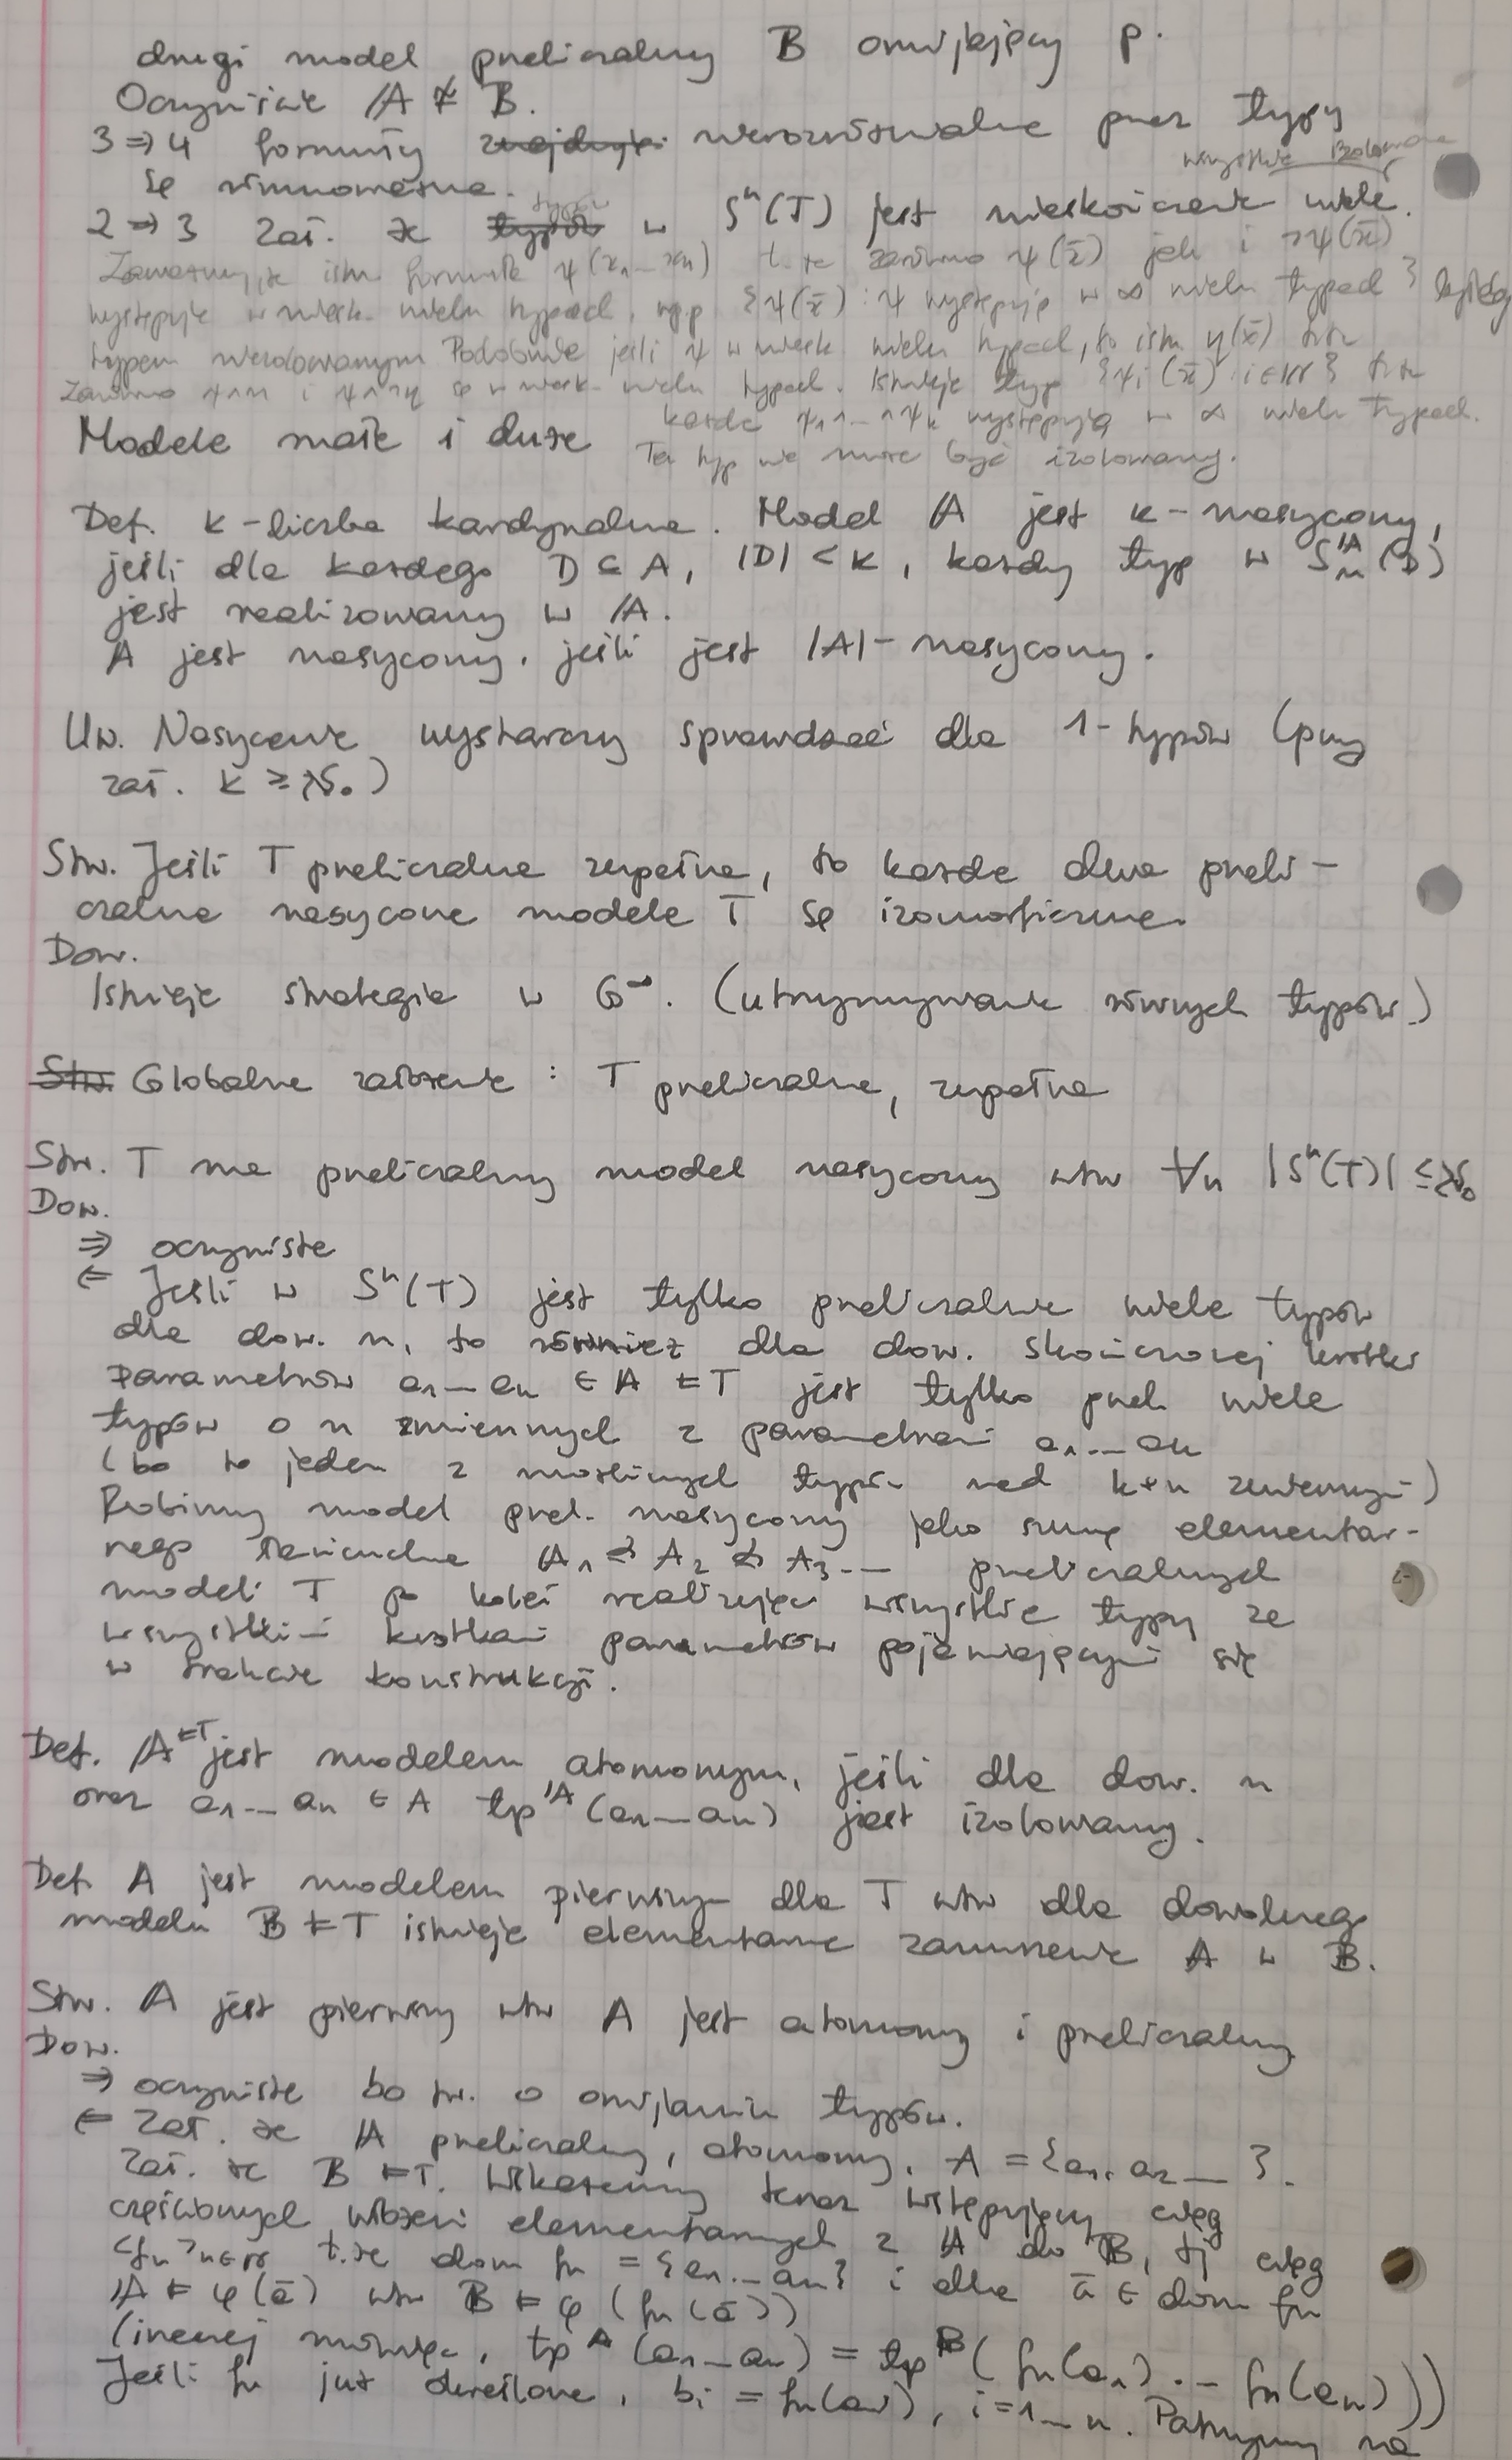 drugi model przeliczalny B omijający p.
Oczywiście A ≇ B.
3 ⇒ 4 formuły nierozróżnialne przez typy
są równoważne. wszystkie izolowane
2 ⇒ 3 Zał. że typów w Sⁿ(T) jest nieskończenie wiele.
Zauważmy, że istn. formuła ψ(x₁ ... xₙ) t. że zarówno ψ(x̄) jak i ¬ψ(x̄)
występuje w niesk. wielu typach, wpp {ψ(x̄) : ψ występuje w ∞ wielu typach} byłoby
typem nieizolowanym. Podobnie jeśli ψ w niesk. wielu typach, to istn. η(x̄) t. że
zarówno ψ∧η i ψ∧¬η są w niesk. wielu typach. Istnieje typ {ψᵢ(x̄) : i∈ℕ} t. że
każda ψ₁∧...∧ψₖ występują w ∞ wielu typach.
Ten typ nie może być izolowany.
Modele małe i duże
Def. κ - liczba kardynalna. Model A jest κ-nasycony,
jeśli dla każdego D ⊆ A, |D| < κ, każdy typ w Sₙᴬ(D)
jest realizowany w A.
A jest nasycony, jeśli jest |A|-nasycony.
Uw. Nasycenie wystarczy sprawdzać dla 1-typów (przy
zał. κ ≥ ℵ₀)
Stw. Jeśli T przeliczalna zupełna, to każde dwa przeli-
czalne nasycone modele T są izomorficzne.
Dow.
Istnieje strategia w G^∞. (utrzymywanie równych typów)
Stw. Globalne założenie : T przeliczalna, zupełna
Stw. T ma przeliczalny model nasycony wtw ∀n |Sⁿ(T)| ≤ ℵ₀
Dow.
⇒ oczywiste
⇐ Jeśli w Sⁿ(T) jest tylko przeliczalnie wiele typów
dla dow. n, to również dla dow. skończonej krotki
parametrów a₁ ... aₖ ∈ A ⊨ T jest tylko przel. wiele
typów o n zmiennych z parametrami a₁ ... aₖ
(bo to jeden z możliwych typów nad k+n zmiennymi)
Robimy model przel. nasycony jako sumę elementar-
nego łańcucha A₁ ≼ A₂ ≼ A₃ ... przeliczalnych
modeli T po kolei realizując wszystkie typy ze
wszystkimi krotkami parametrów pojawiającymi się
w trakcie konstrukcji.
Def. A ⊨T jest modelem atomowym, jeśli dla dow. n
oraz a₁ ... aₙ ∈ A tpᴬ(a₁ ... aₙ) jest izolowany.
Def. A jest modelem pierwszym dla T wtw dla dowolnego
modelu B ⊨ T istnieje elementarne zanurzenie A w B.
Stw. A jest pierwszy wtw A jest atomowy i przeliczalny
Dow.
⇒ oczywiste bo tw. o omijaniu typów.
⇐ Zał. że A przeliczalny, atomowy. A = {a₁, a₂ ... }.
Zał. że B ⊨ T. Wskażemy teraz wstępujący ciąg
częściowych włożeń elementarnych z A do B, tj ciąg
<fₙ>n∈ℕ t.że dom fₙ = {a₁ ... aₙ} i dla ā ∈ dom fₙ
A ⊨ φ(ā) wtw B ⊨ φ(fₙ(ā))
(inaczej mówiąc, tpᴬ(a₁ ... aₙ) = tpᴮ(fₙ(a₁) ... fₙ(aₙ)))
Jeśli fₙ już określone, bᵢ = fₙ(aᵢ), i=1 ... n. Patrzymy na